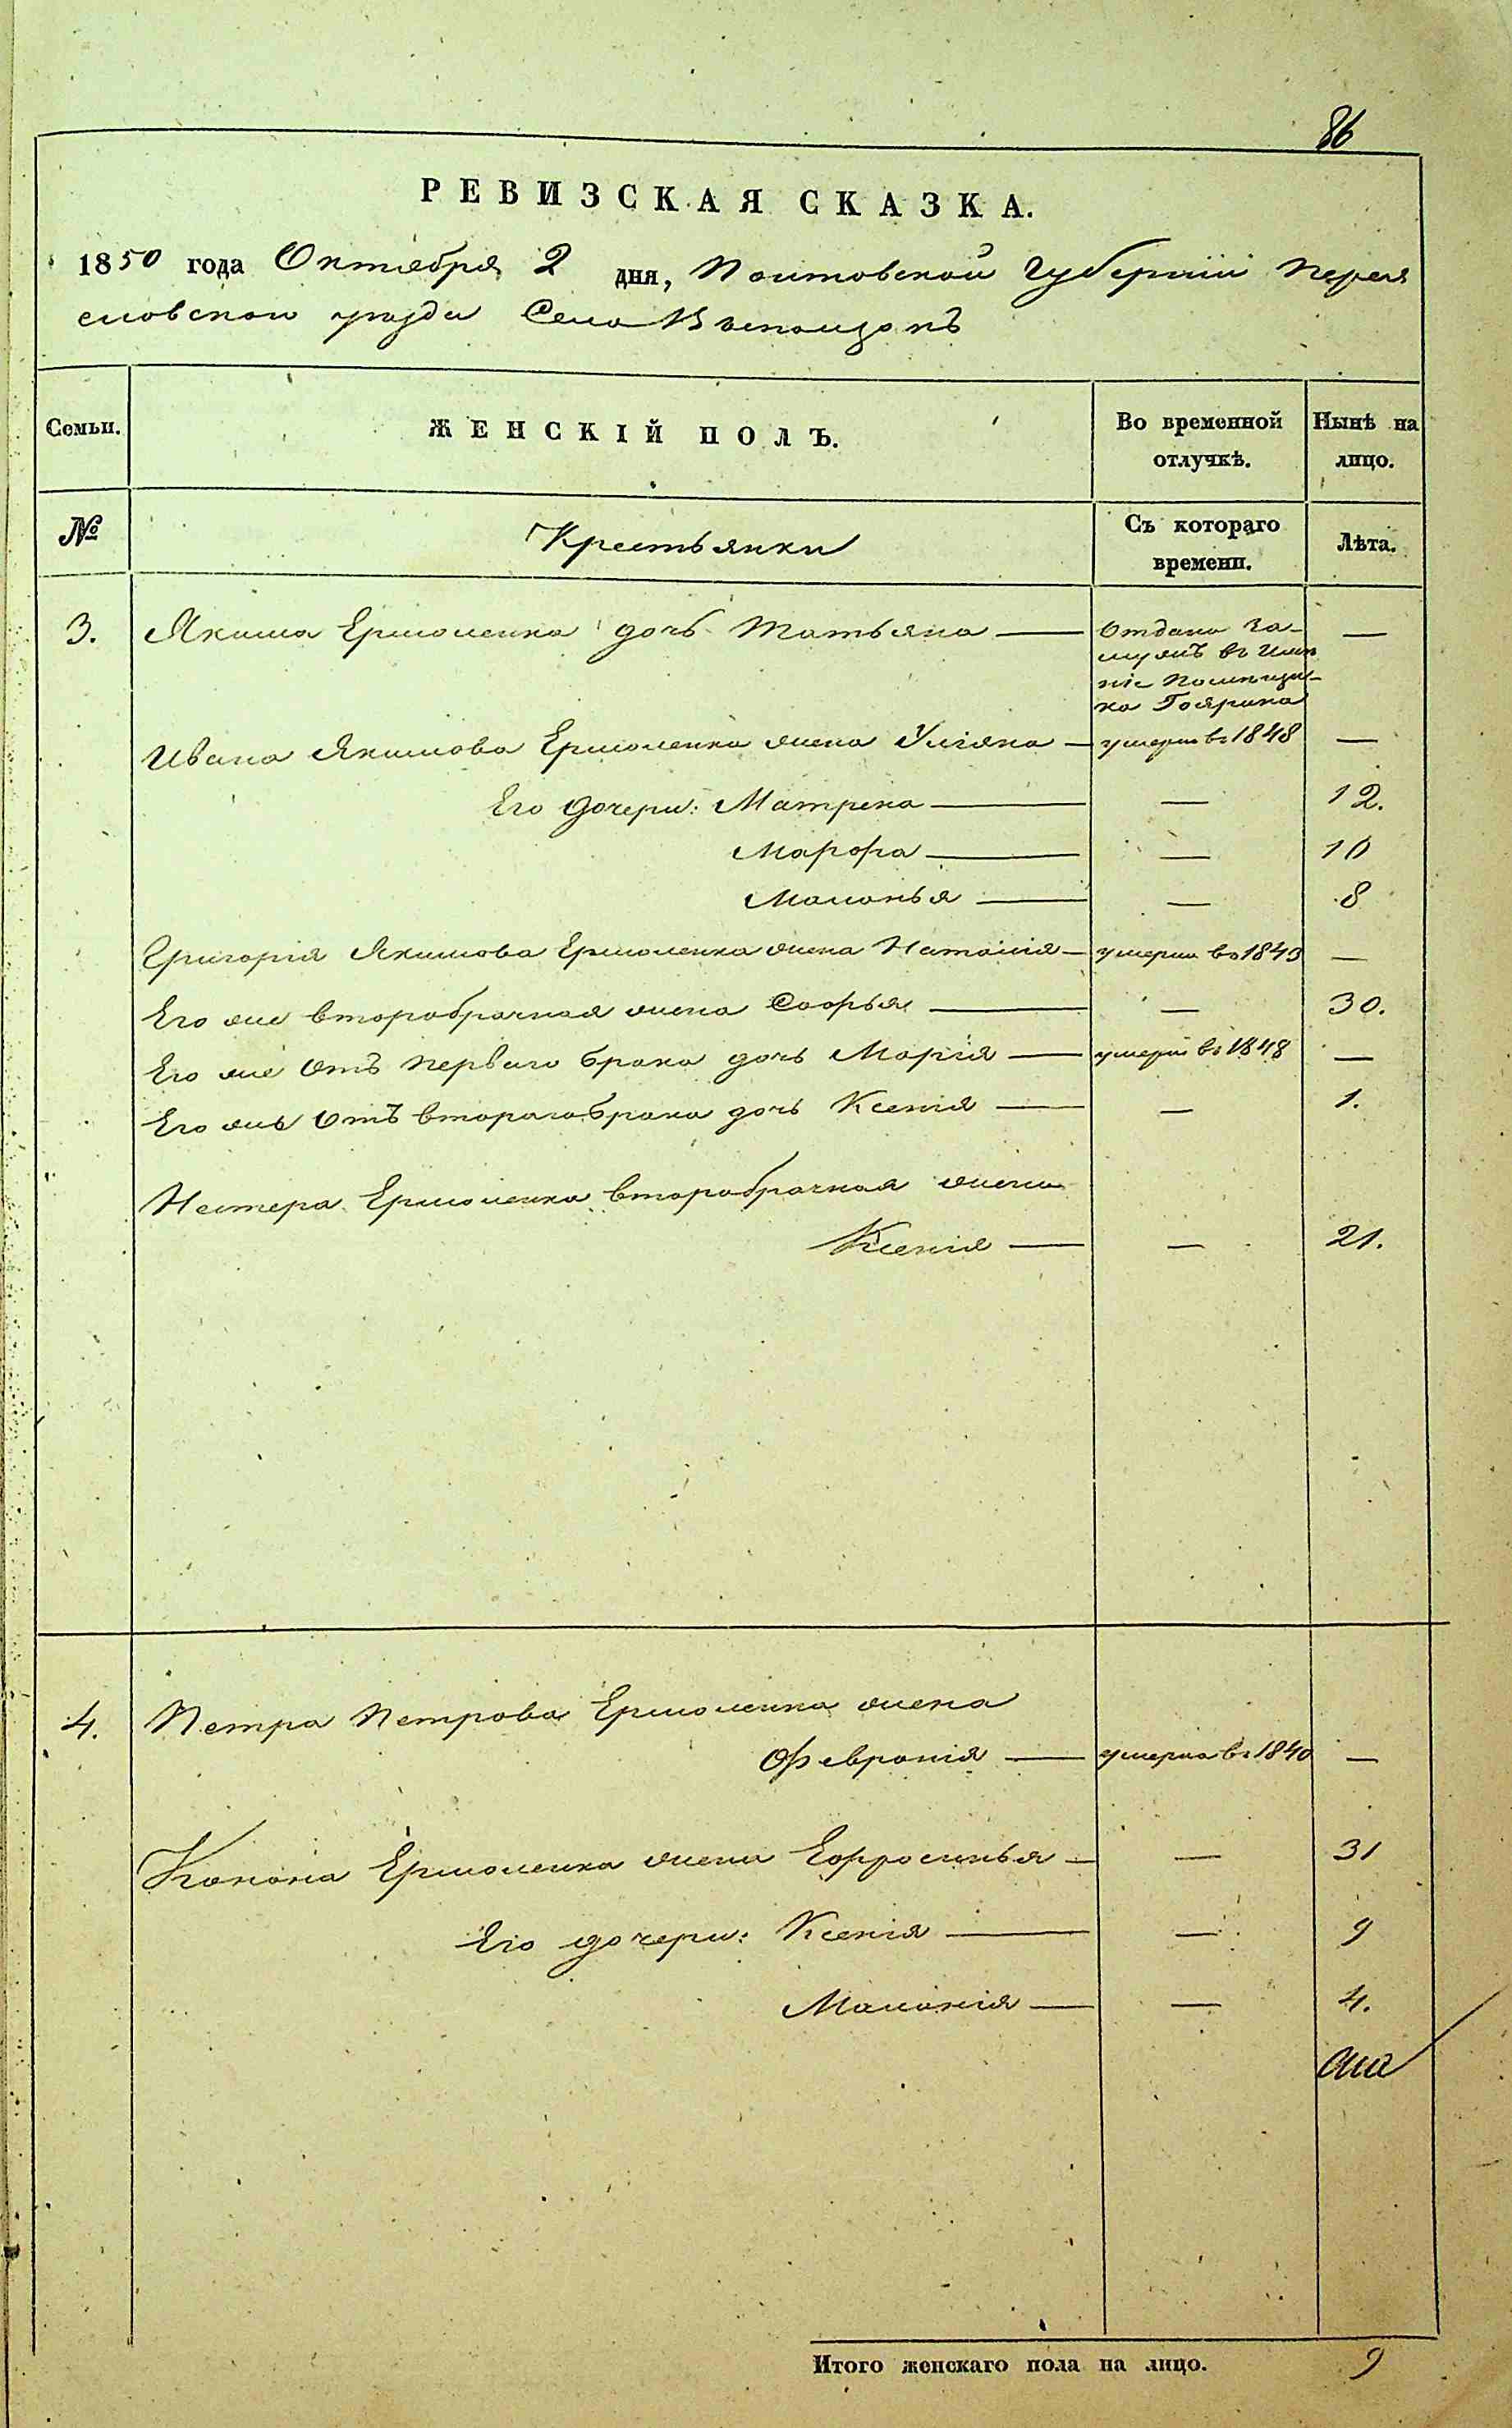 86
РЕВИЗСКАЯ СКАЗКА.
1850 года Октября 2 дня, Полтавской Губерніи Перея
славского уезда Село
Семьи. ЖЕНСКІЙ ПОЛЪ. Во временной отлучкѣ. Нынѣ на лицо.
№ Крестьянки Съ котораго времени. Лѣта.
3. Якима Ермоленка дочь Татьяна — Отдана за- —
мужъ въ име
ніе помещи-
ка
Ивана Якимова Ермоленка жена Уліяна — умерла въ 1848 —
Его дочери: Матрена — — 12.
Марфа — — 10
Маланья — — 8
Григорія Якимова Ермоленка жена Наталія — умерла въ 1843 —
Его же второбрачная жена Софья — — 30.
Его же отъ перваго брака дочь Марія — умерла въ 1848 —
Его же отъ втораго брака дочь Ксенія — — 1.
Нестера Ермоленка второбрачная жена
Ксенія — — 21.
4. Петра Петрова Ермоленка жена
Февронія — умерла въ 1840 —
Конона Ермоленка жена Ефросинья — — 31
Его дочери: Ксенія — — 9
Маланія — — 4.
Итого женскаго пола на лицо. 9